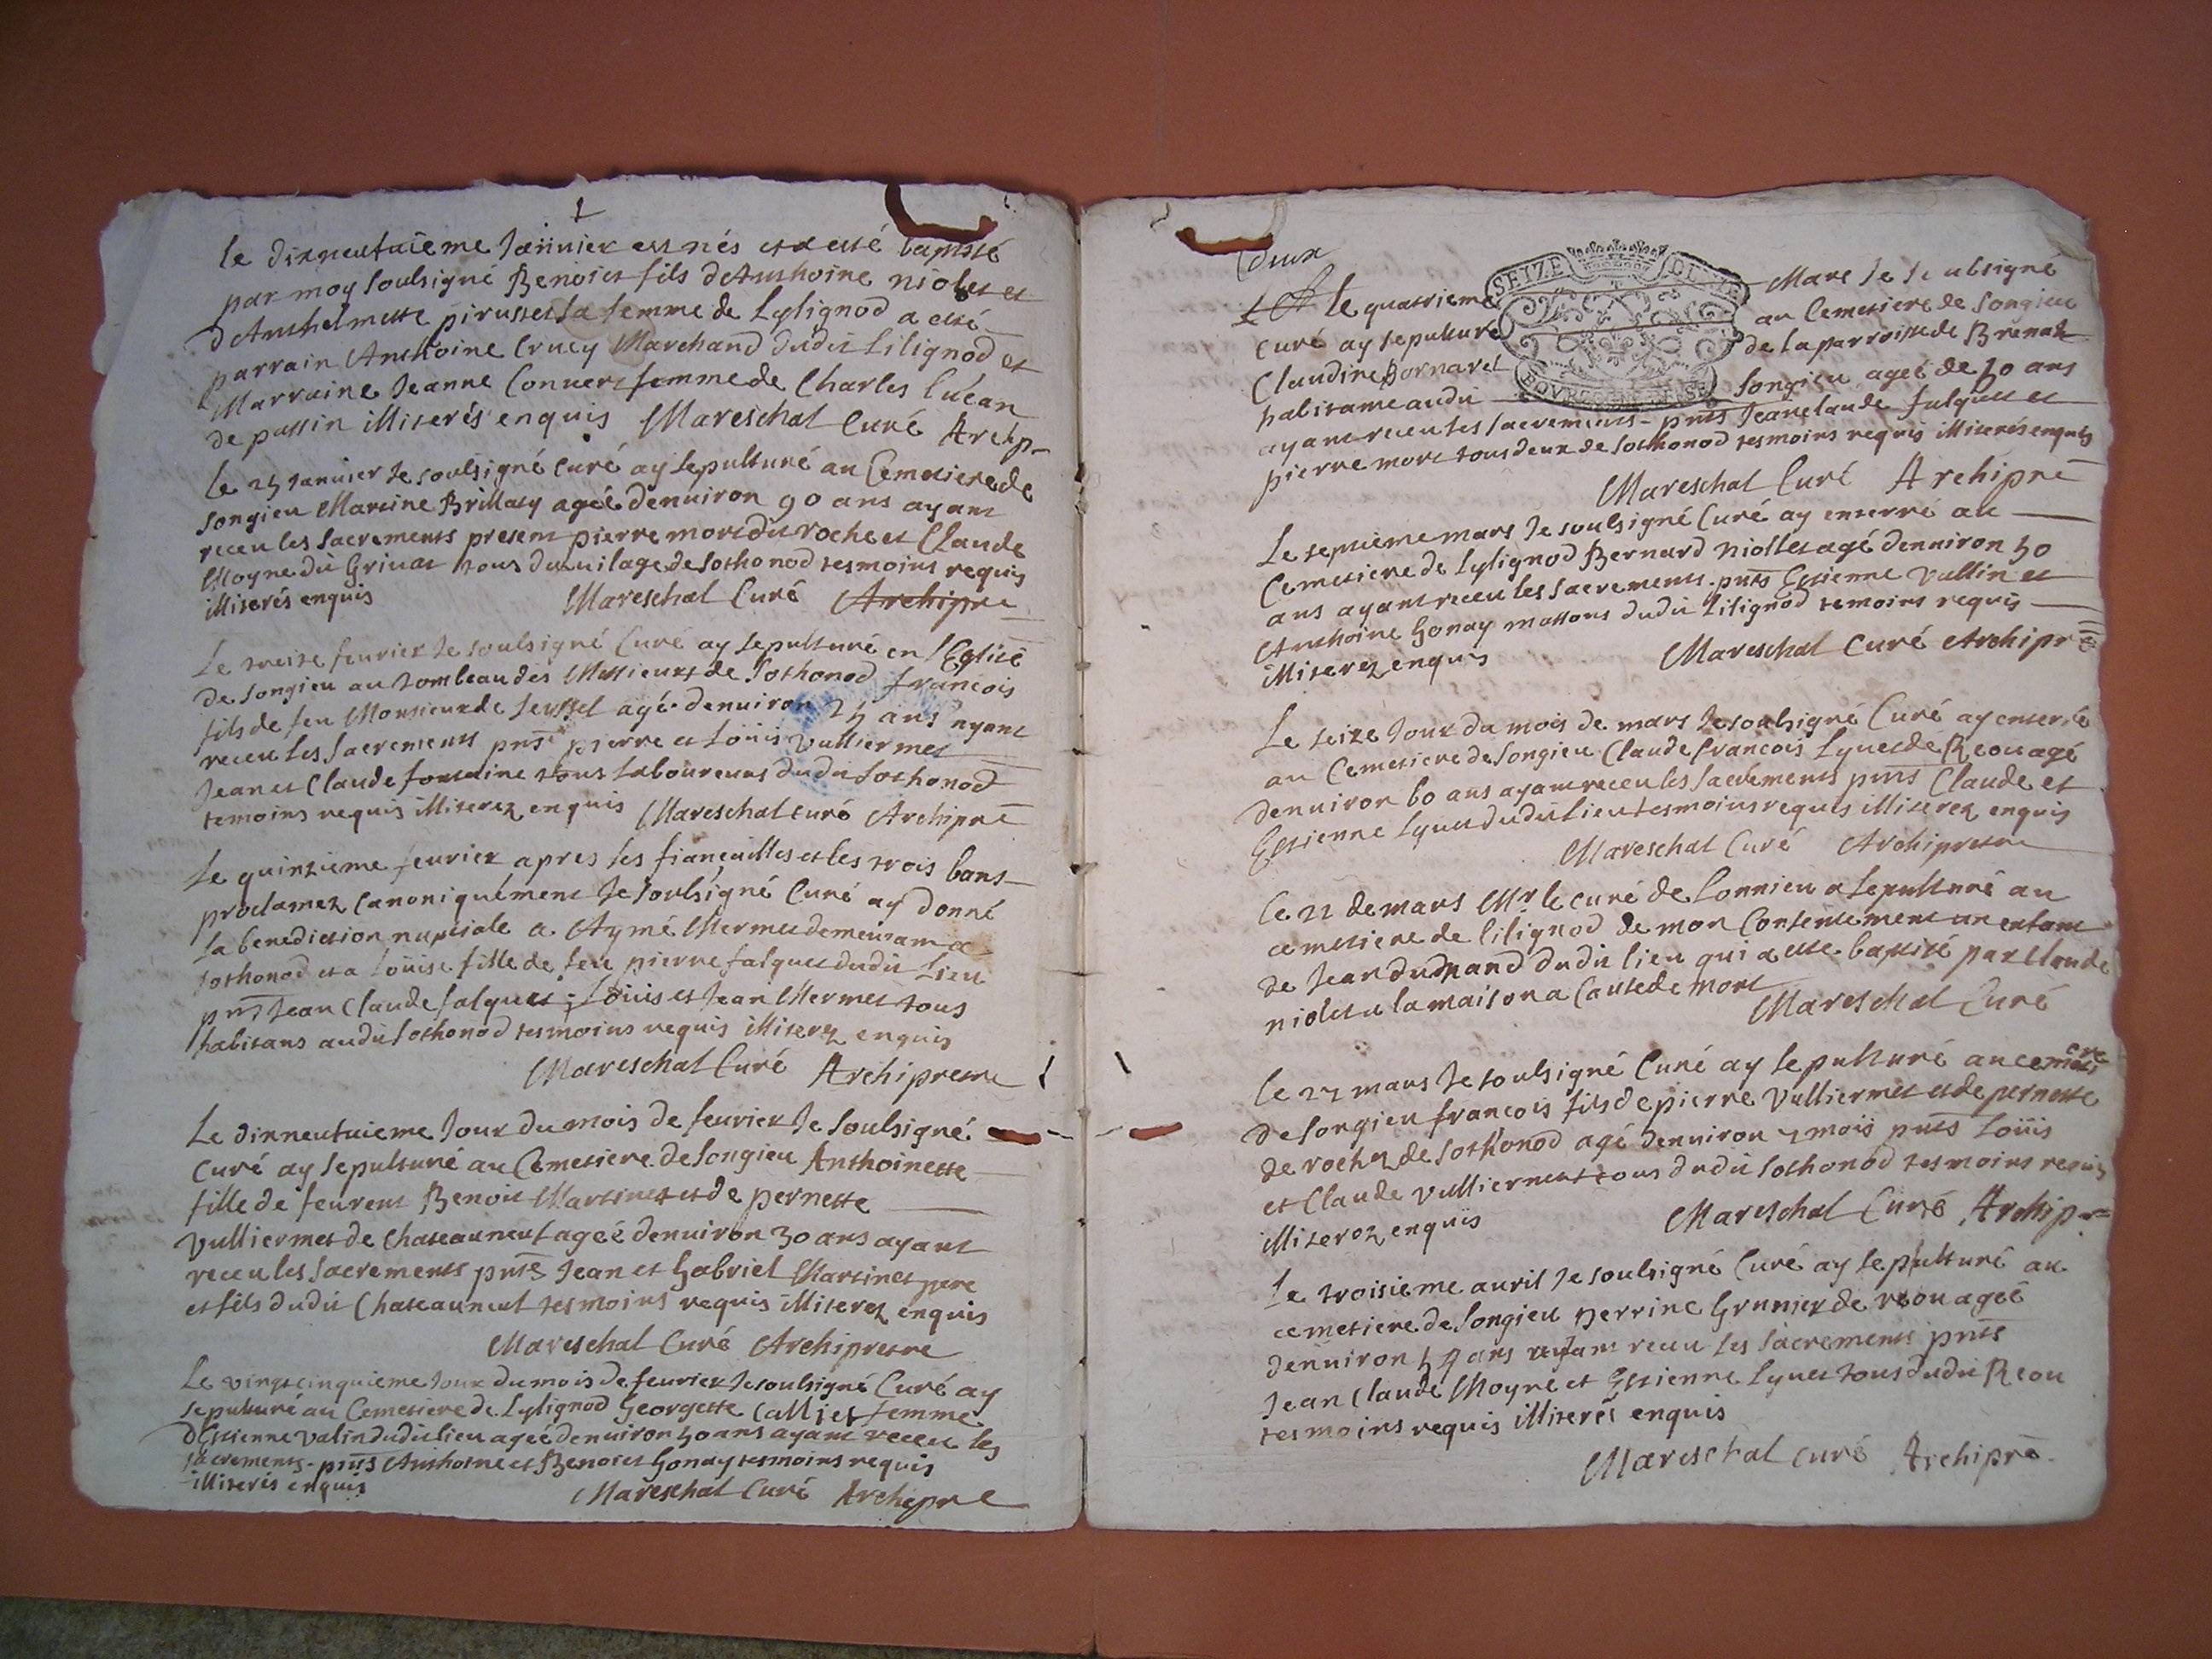 1
le dixneufuieme Januier est nés et a esté baptisé
par moy soulsigné Benoict fils d'Anthoine niolet et
d'Anthelmette pirusset sa femme de Lylignod a esté
parrain Anthoine Crucy Marchand dudit Lilignod et
Marraine Jeanne Convert femme de Charles Lucan
de passin illiterés enquis Mareschal Curé Archip
Le 25 Januier Je soulsigné Curé ay sepulturé au Cemetiere de
songieu Martine Brillaty ageé denuiron 90 ans ayant
receu les sacrements present pierre mort du roche et Claude
Moyne du Grinat tous du vilage de sothonod tesmoins requis
illiterés enquis Mareschal Curé Archipre
Le treise feurier Je soulsigné Curé ay sepulturé en l'Eglise
de songieu au tombeau des Messieurs de Sothonod francois
fils de feu Monsieur de seyssel agé denuiron 25 ans ayant
receu les sacrements pnts pierre et Loüis vulliermet
Jean et Claude fontaine tous laboureurs dudit Sothonod
temoins requis illiterez enquis Mareschal curé Archipre
Le quinzieme feurier apres les fiancailles et les trois bans
proclamez canoniquement Je soulsigné Curé ay donné
la benediction nuptiale a Aymé Mermet demeurant a
sothonod et a Loüise fille de feu pierre falquet dudit Lieu
pnts Jean Claude falquet Loüis et Jean Mermet tous
habitans audit sothonod tesmoins requis illiterez enquis
Mareschal Curé Archipretre
Le dixneufuieme Jour du mois de feurier Je soulsigné
Curé ay sepulturé au Cemetiere de songieu Anthoinette
fille de feu Benoit Martinet et de pernette
vulliermet de chateauneuf ageé denuiron 30 ans ayant
receu les sacrements pnts Jean et Gabriel Martinet pere
et fils dudit Chateauneuf tesmoins requis illiterez enquis
Mareschal Curé Archipretre
Le vingtcinquieme Jour du mois de feurier Je soulsigné Curé ay
sepulturé au Cemetiere de Lylignod Georgette Calliet femme
d'Estienne valin dudit lieu ageé denuiron 50 ans ayant receu les
sacrements pnts Anthoine et Benoict Gonay tesmoins requis
illiterés enquis Mareschal Curé Archipre
deux
SEIZE DI
BOVRGOGNE
le quatrieme Mars Je soulsigné
curé ay sepulturé au Cemetiere de songieu
Claudine Bornarel de la parroisse de Brenaz
habitante audit songieu ageé de 30 ans
ayant receu les sacrements pnts Jean claude falquet et
pierre mort tous deux de sothonod tesmoins requis illiterés enquis
Mareschal Curé Archipre
Le septieme mars Je soulsigné Curé ay enterré au
Cemetiere de Lylignod Bernard niollet agé denuiron 50
ans ayant receu les sacrements pnts Estienne vallin et
Anthoine Gonay massons dudit Lilignod temoins requis
illiterez enquis Mareschal Curé Archipre
Le seize Jour du mois de mars Je soulsigné Curé ay enterré
au Cemetiere de songieu Claude francois Lyvet de Reou agé
denuiron 60 ans ayant receu les sacrements pnts Claude et
Estienne Lyvet dudit lieu tesmoins requis illiterez enquis
Mareschal Curé Archipretre
le 22 de mars Mr le curé de Lonnieu a sepulturé au
cemetiere de lilignod de mon consentement un enfant
de Jean durand dudit lieu qui a esté baptisé par Claude
niolet a la maison a cause de mort
Mareschal Curé
le 27 mars Je soulsigné Curé ay sepulturé au cemetiere
de songieu francois fils de pierre vulliermet et de pernette
de rochez de sothonod agé denuiron 7 mois pnts Loüis
et Claude vulliermet tous dudit sothonod tesmoins requis
illiterez enquis Mareschal Curé Archipre
Le troisieme auril Je soulsigné Curé ay sepulturé au
cemetiere de songieu perrine Grunier de reou ageé
denuiron 54 ans ayant receu les sacrements pnts
Jean Claude Moyne et Estienne Lyvet tous dudit Reou
tesmoins requis illiterés enquis
Mareschal curé Archipre